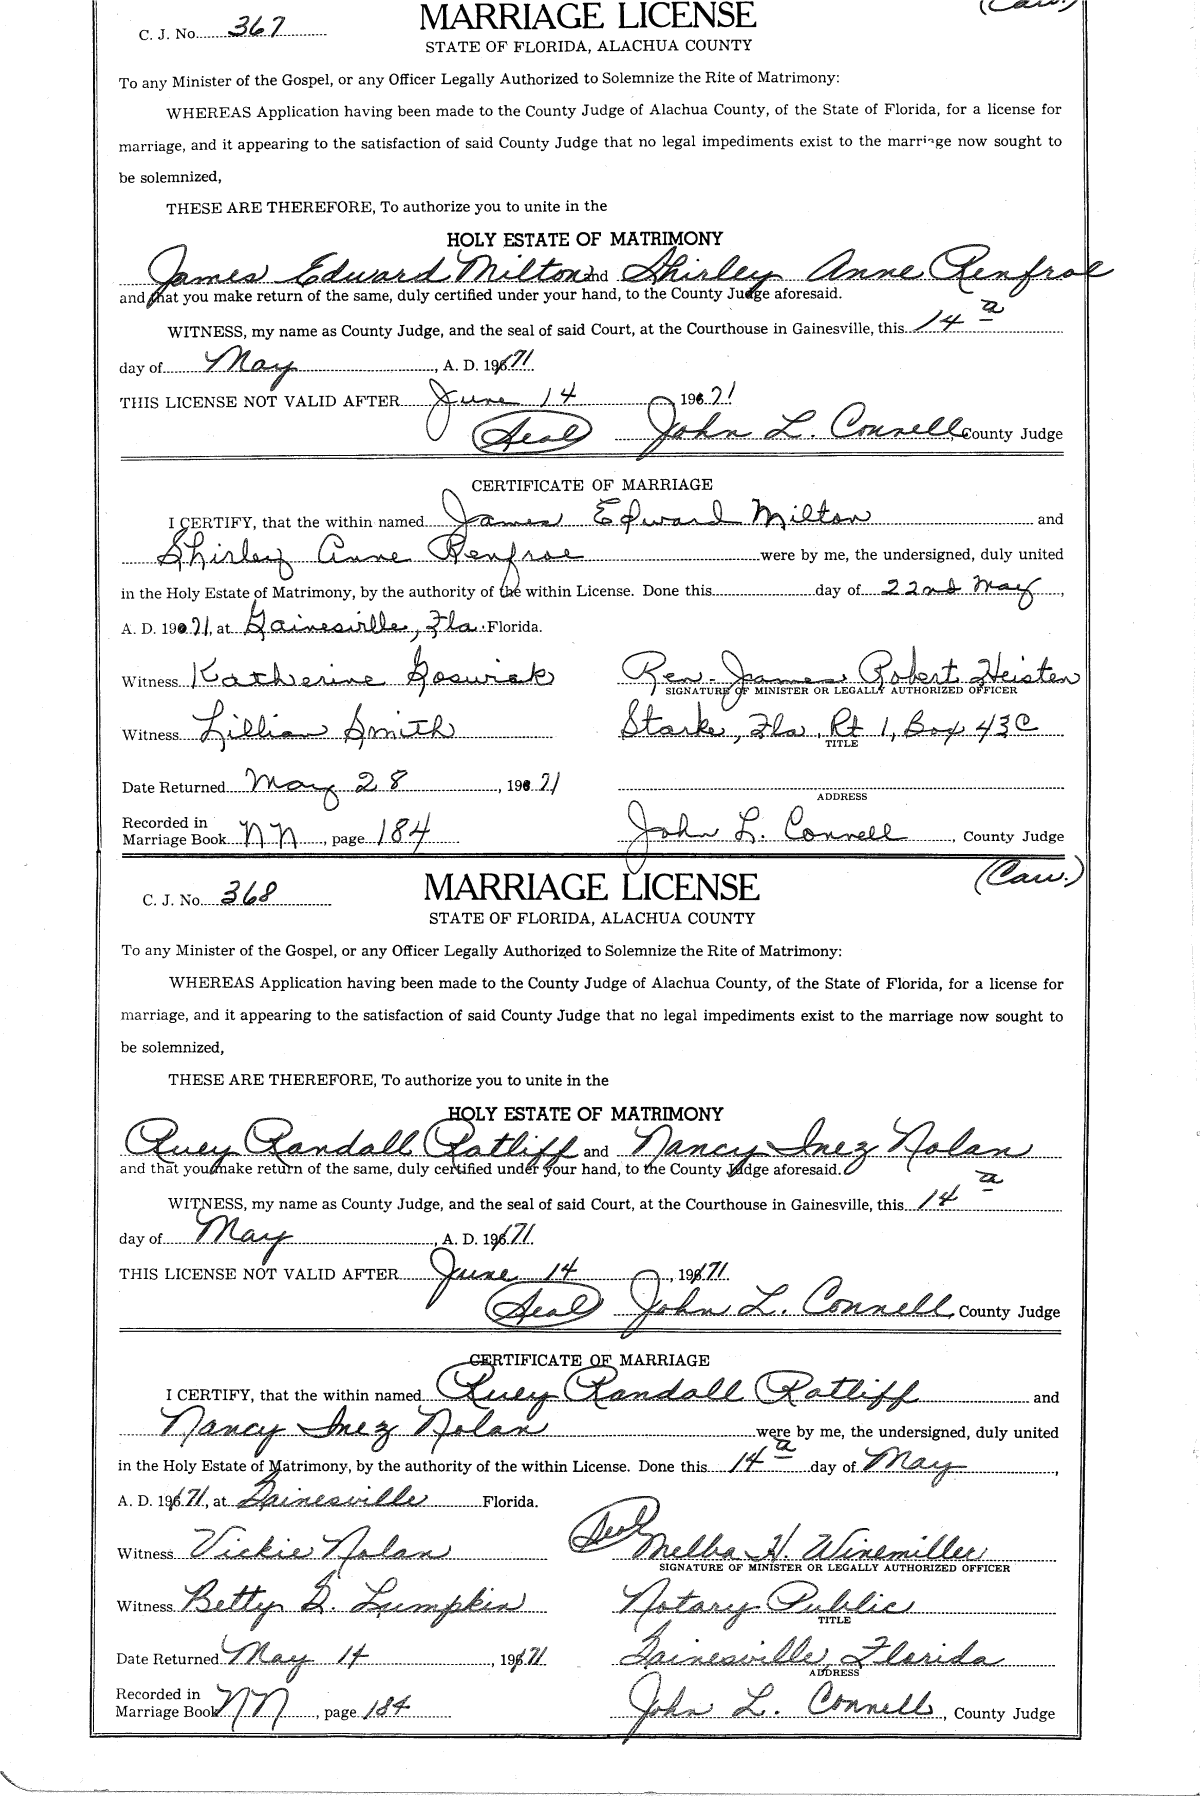 (Cau.)
C. J. No. 367 MARRIAGE LICENSE
STATE OF FLORIDA, ALACHUA COUNTY
To any Minister of the Gospel, or any Officer Legally Authorized to Solemnize the Rite of Matrimony:
WHEREAS Application having been made to the County Judge of Alachua County, of the State of Florida, for a license for
marriage, and it appearing to the satisfaction of said County Judge that no legal impediments exist to the marriage now sought to
be solemnized,
THESE ARE THEREFORE, To authorize you to unite in the
HOLY ESTATE OF MATRIMONY
James Edward Milton and Shirley Anne Renfroe
and that you make return of the same, duly certified under your hand, to the County Judge aforesaid.
WITNESS, my name as County Judge, and the seal of said Court, at the Courthouse in Gainesville, this 14
day of May, A. D. 1971
THIS LICENSE NOT VALID AFTER June 14, 1971
(Seal) John L. Connell County Judge
CERTIFICATE OF MARRIAGE
I CERTIFY, that the within named James Edward Milton and
Shirley Anne Renfroe were by me, the undersigned, duly united
in the Holy Estate of Matrimony, by the authority of the within License. Done this day of 22nd May,
A. D. 1971, at Gainesville, Fla. Florida.
Witness Katherine Rev. James Robert Heisten
SIGNATURE OF MINISTER OR LEGALLY AUTHORIZED OFFICER
Witness Lillian Smith Starke, Fla. Rt 1, Box 43C
TITLE
Date Returned May 28, 1971
ADDRESS
Recorded in
Marriage Book NN, page 184 John L. Connell, County Judge
(Cau.)
C. J. No. 368 MARRIAGE LICENSE
STATE OF FLORIDA, ALACHUA COUNTY
To any Minister of the Gospel, or any Officer Legally Authorized to Solemnize the Rite of Matrimony:
WHEREAS Application having been made to the County Judge of Alachua County, of the State of Florida, for a license for
marriage, and it appearing to the satisfaction of said County Judge that no legal impediments exist to the marriage now sought to
be solemnized,
THESE ARE THEREFORE, To authorize you to unite in the
HOLY ESTATE OF MATRIMONY
Quey Randall Ratliff and Nancy Inez Nolan
and that you make return of the same, duly certified under your hand, to the County Judge aforesaid.
WITNESS, my name as County Judge, and the seal of said Court, at the Courthouse in Gainesville, this 14
day of May, A. D. 1971
THIS LICENSE NOT VALID AFTER June 14, 1971
(Seal) John L. Connell, County Judge
CERTIFICATE OF MARRIAGE
I CERTIFY, that the within named Quey Randall Ratliff and
Nancy Inez Nolan were by me, the undersigned, duly united
in the Holy Estate of Matrimony, by the authority of the within License. Done this 14 day of May,
A. D. 1971, at Gainesville Florida.
Witness Vickie Nolan (Seal) Melba H. Winemiller
SIGNATURE OF MINISTER OR LEGALLY AUTHORIZED OFFICER
Witness Betty G. Lumpkin Notary Public
TITLE
Date Returned May 14, 1971 Gainesville, Florida
ADDRESS
Recorded in
Marriage Book NN, page 184 John L. Connell, County Judge